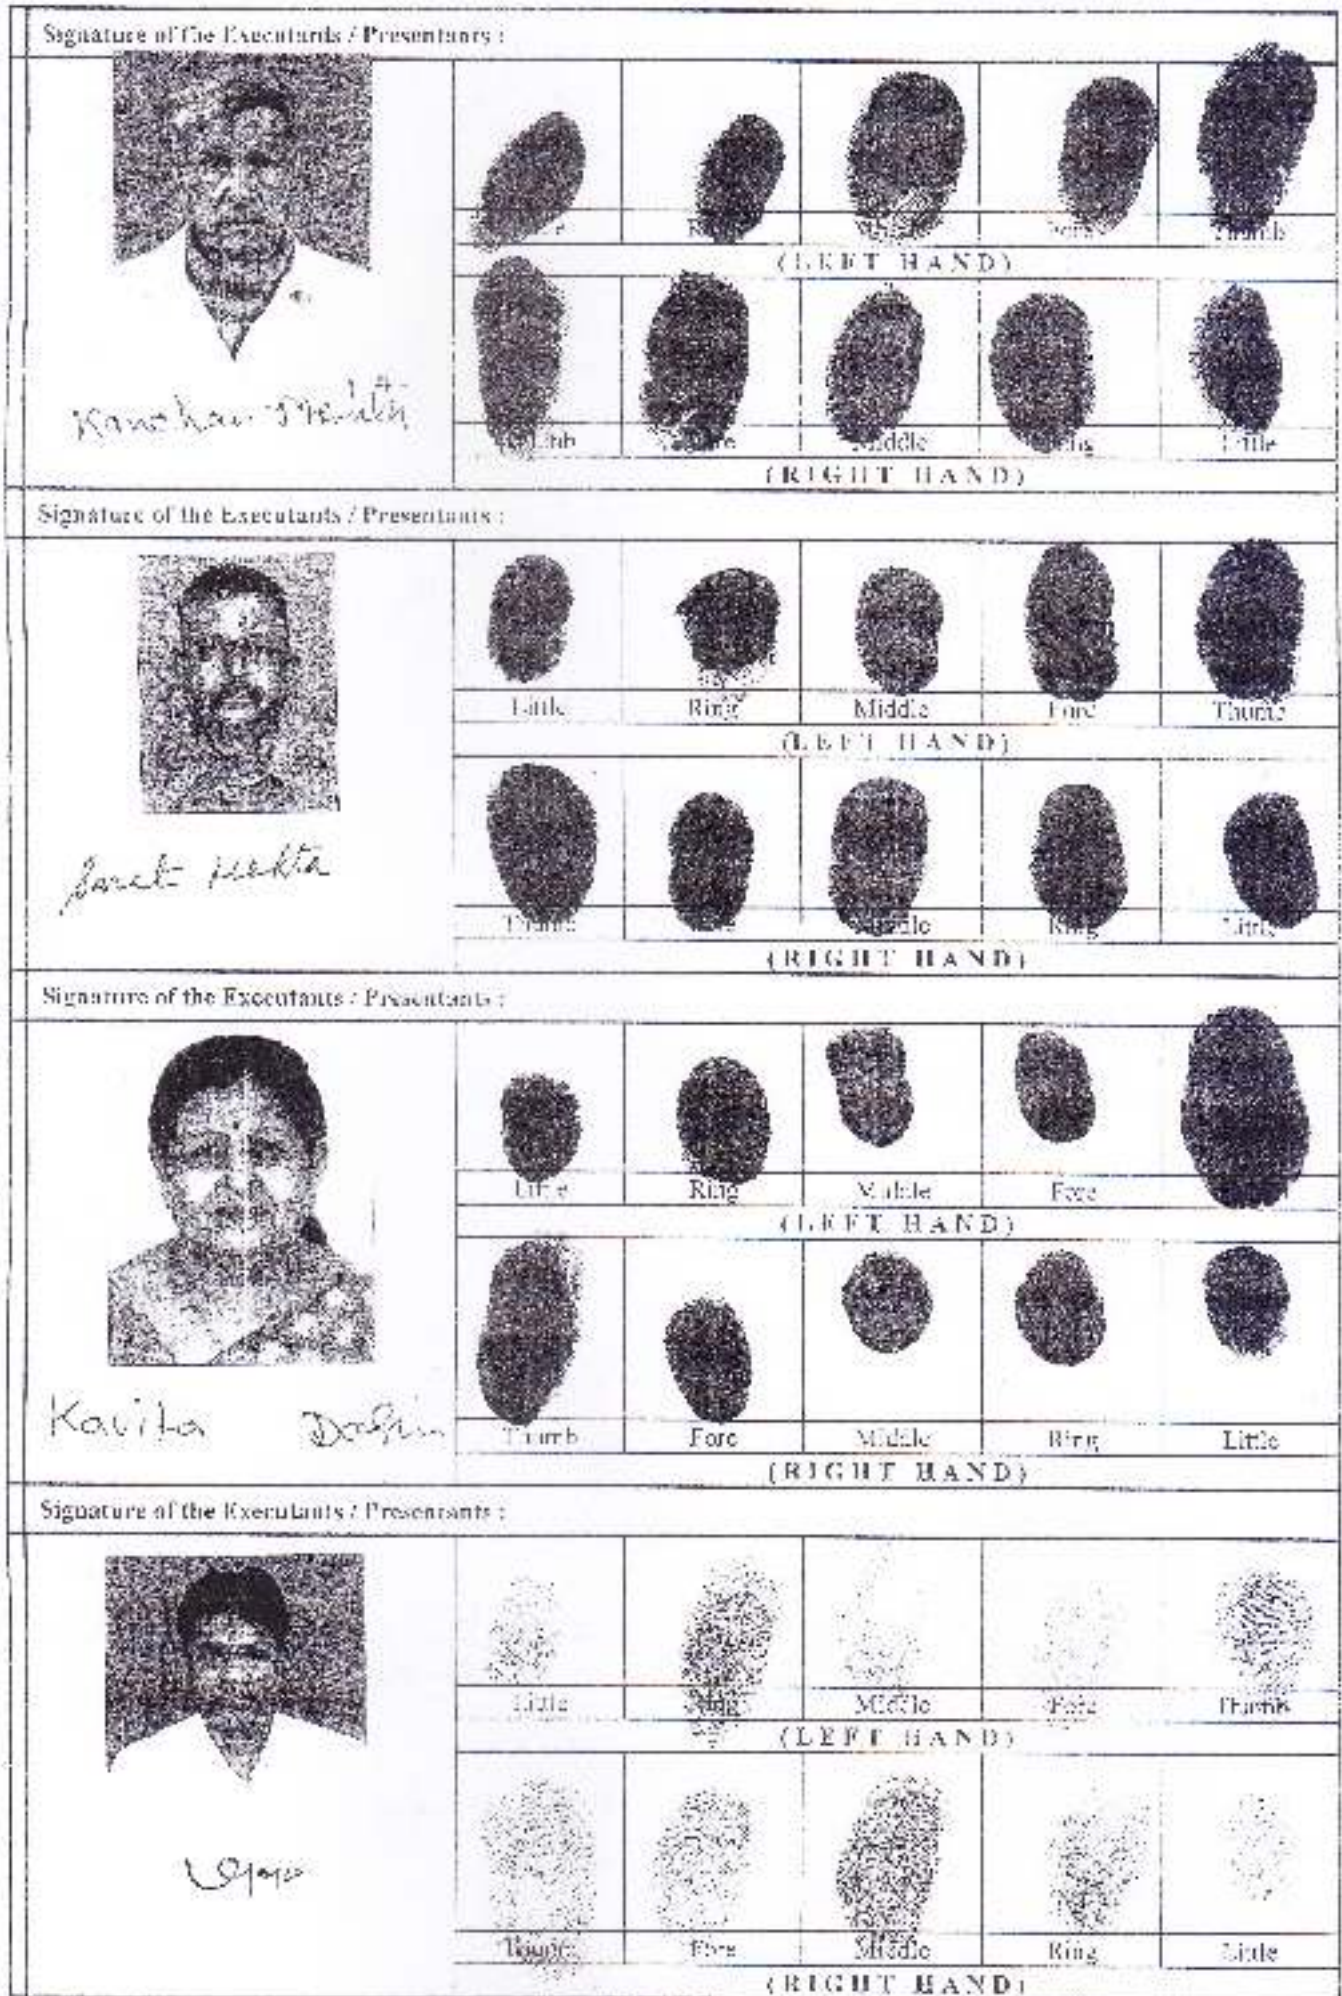 Signature of the Executants / Presentants :
Thumb
(LEFT HAND)
Middle Little
(RIGHT HAND)
Signature of the Executants / Presentants :
Little Ring Middle Fore Thumb
(LEFT HAND)
Thumb Middle Ring Little
(RIGHT HAND)
Mehta
Signature of the Executants / Presentants :
Little Ring Middle Fore
(LEFT HAND)
Kavita
Thumb Fore Middle Ring Little
(RIGHT HAND)
Signature of the Executants / Presentants :
Little Ring Middle Fore Thumb
(LEFT HAND)
Thumb Fore Middle Ring Little
(RIGHT HAND)